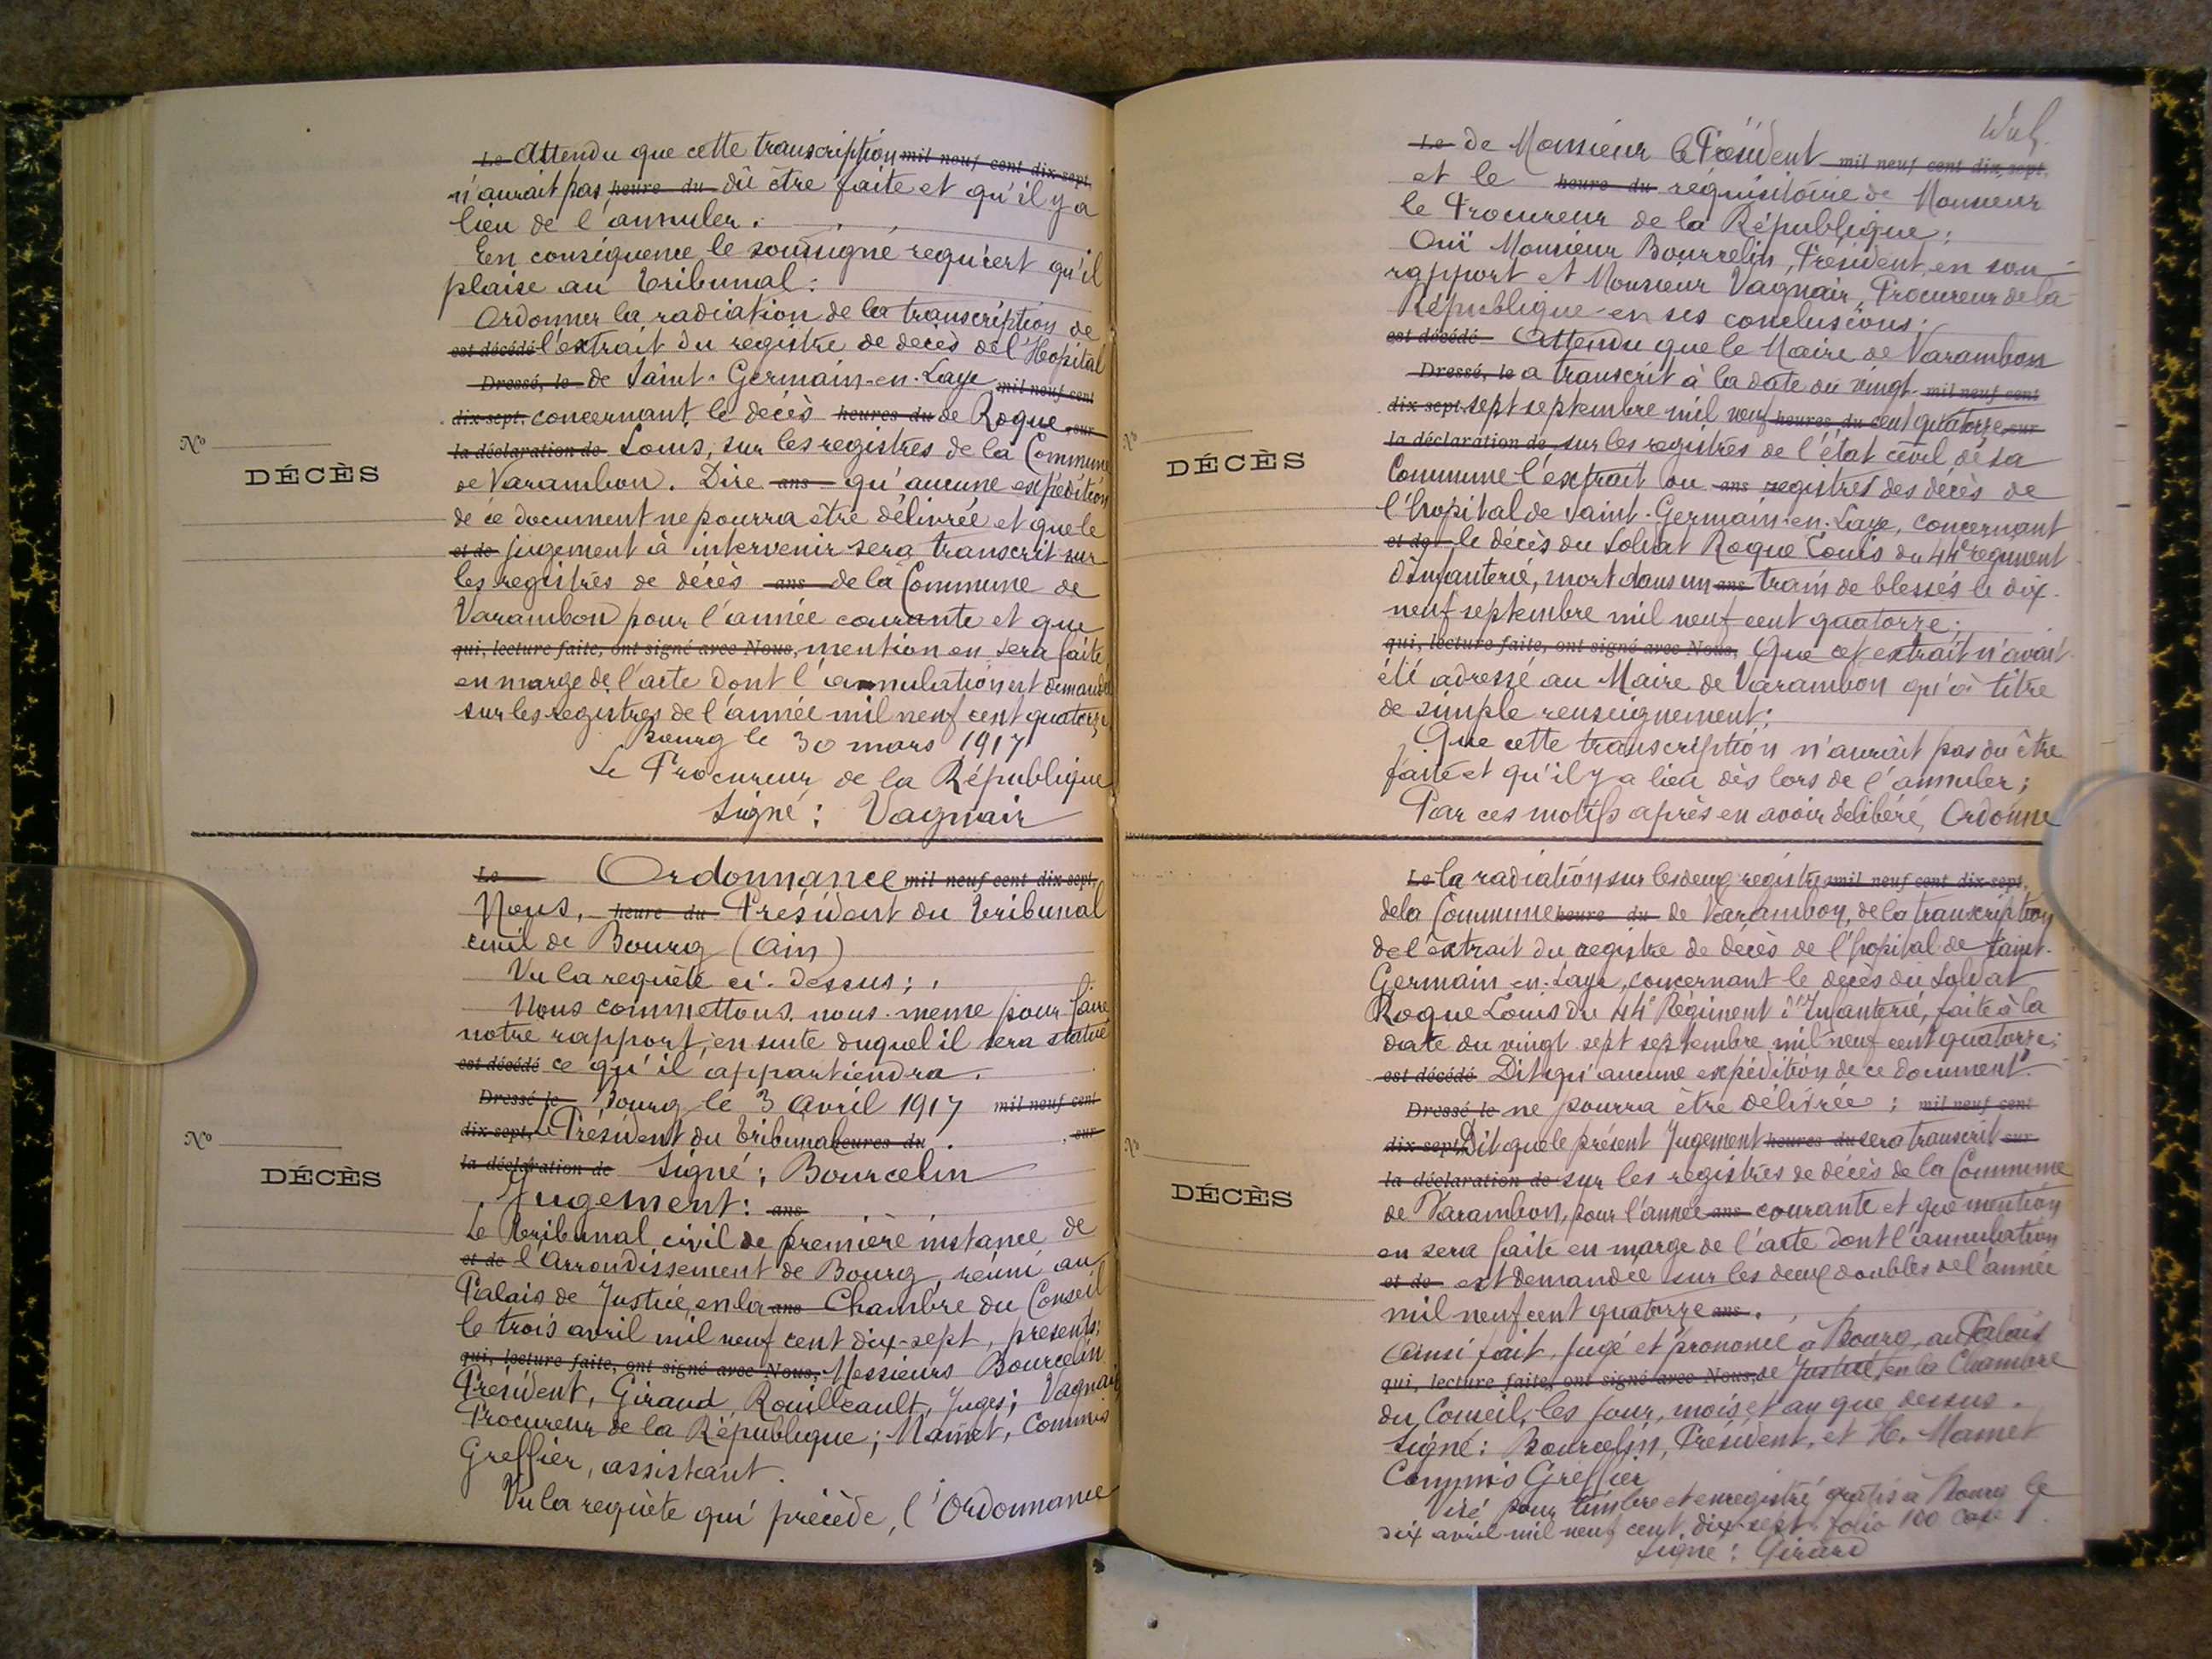 Le Attendu que cette transcription mil neuf cent dix-sept,
n'aurait pas heure du dû être faite et qu'il y a
lieu de l'annuler.
En conséquence le soussigné requiert qu'il
plaise au tribunal:
Ordonner la radiation de la transcription de
est décédé l'extrait du registre de décès de l'Hopital
Dressé, le de Saint-Germain-en-Laye mil neuf cent
dix-sept, concernant le décès heures du de Roque sur
la déclaration de Louis, sur les registres de la Commune
de Varambon. Dire ans qu'aucune expédition
de ce document ne pourra être délivrée et que le
et de jugement à intervenir sera transcrit sur
les registres de décès ans de la Commune de
Varambon pour l'année courante et que
qui, lecture faite, ont signé avec Nous, mention en sera faite
en marge de l'acte dont l'annulation est demandée
sur les registres de l'année mil neuf cent quatorze
Bourg le 30 mars 1917
Le Procureur de la République
Signé: Vagnair
N°
DÉCÈS
Le Ordonnance mil neuf cent dix-sept,
Nous, heure du Président du tribunal
civil de Bourg (Ain)
Vu la requête ci-dessus;
Nous commettons nous-meme pour faire
notre rapport, ensuite duquel il sera statué
est décédé ce qu'il appartiendra.
Dressé le Bourg le 3 Avril 1917 mil neuf cent
dix-sept, Le Président du tribunal heures du , sur
la déclaration de Signé: Bourcelin
Jugement: ans
Le tribunal civil de première instance de
et de l'arrondissement de Bourg, réuni au
Palais de Justice, en la ans Chambre du Conseil
le trois avril mil neuf cent dix-sept, présents:
qui, lecture faite, ont signé avec Nous, Messieurs Bourcelin
Président, Giraud, Rouilleault, Juges; Vagnair
Procureur de la République; Mamet, Commis
Greffier, assistant.
Vu la requète qui précède, l'Ordonnance
N°
DÉCÈS
Le de Monsieur le Président mil neuf cent dix-sept,
et le heure du réquisitoire de Monsieur
le Procureur de la République;
Ouï Monsieur Bourcelin, Président, en son
rapport et Monsieur Vagnair, Procureur de la
République en ses conclusions;
est décédé Attendu que le Maire de Varambon
Dressé, le a transcrit à la date du vingt- mil neuf cent
dix-sept, sept septembre mil neuf heures du cent quatorze sur
la déclaration de, sur les registres de l'état civil de sa
Commune l'extrait du ans registres des décès de
l'hopital de Saint-Germain-en-Laye, concernant
et de le décès du Soldat Roque Louis du 44e régiment
d'Infanterie, mort dans un ans train de blessés le dix-
neuf septembre mil neuf cent quatorze;
qui, lecture faite, ont signé avec Nous, Que cet extrait n'avait
été adressé au Maire de Varambon qu'à titre
de simple renseignement;
Que cette transcription n'aurait pas du être
faite et qu'il y a lieu dès lors de l'annuler;
Par ces motifs après en avoir délibéré, Ordonne
N°
DÉCÈS
Le la radiation sur les deux registres mil neuf cent dix-sept,
de la Commune heure du de Varambon, de la transcription
de l'extrait du registre de décès de l'hopital de Saint-
Germain-en-Laye, concernant le décès du Soldat
Roque Louis du 44e Régiment d'Infanterie, faite à la
date du vingt sept septembre mil neuf cent quatorze;
est décédé Dit qu'aucune expédition de ce document
Dressé le ne pourra être délivrée; mil neuf cent
dix-sept, Dit que le présent Jugement heures du sera transcrit sur
la déclaration de sur les registres de décès de la Commune
de Varambon, pour l'année ans courante et que mention
en sera faite en marge de l'acte dont l'annulation
et de est demandée sur les deux doubles de l'année
mil neuf cent quatorze ans.
Ainsi fait, jugé et prononcé à Bourg, au Palais
qui, lecture faite, ont signé avec Nous, de Justice, en la Chambre
du Conseil, les jour, mois et an que dessus.
Signé: Bourcelin, Président, et H. Mamet
Commis Greffier
Visé pour timbre et enregistré gratis à Bourg le
dix avril mil neuf cent dix-sept folio 100 case 1.
Signé: Girard
DÉCÈS